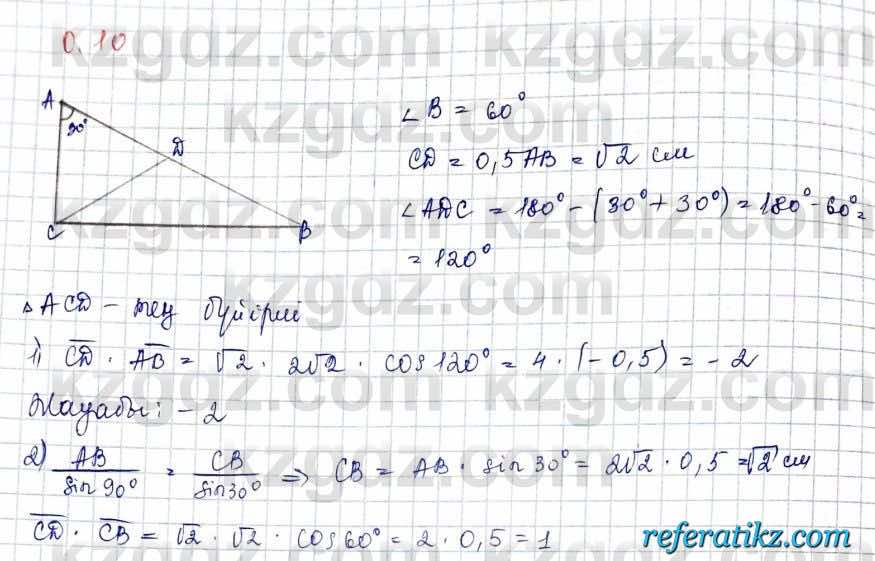 0.10
A
30°
D
C
B
∠B = 60°
CD = 0,5AB = √2 см
∠ADC = 180° - (30° + 30°) = 180° - 60° =
= 120°
△ACD - тең бүйірлі
1) CD · AB = √2 · 2√2 · cos 120° = 4 · (-0,5) = -2
Жауабы: -2
2) AB/sin 90° = CB/sin 30° => CB = AB · sin 30° = 2√2 · 0,5 = √2 см
CD · CB = √2 · √2 · cos 60° = 2 · 0,5 = 1
kzgdz.com
referatikz.com